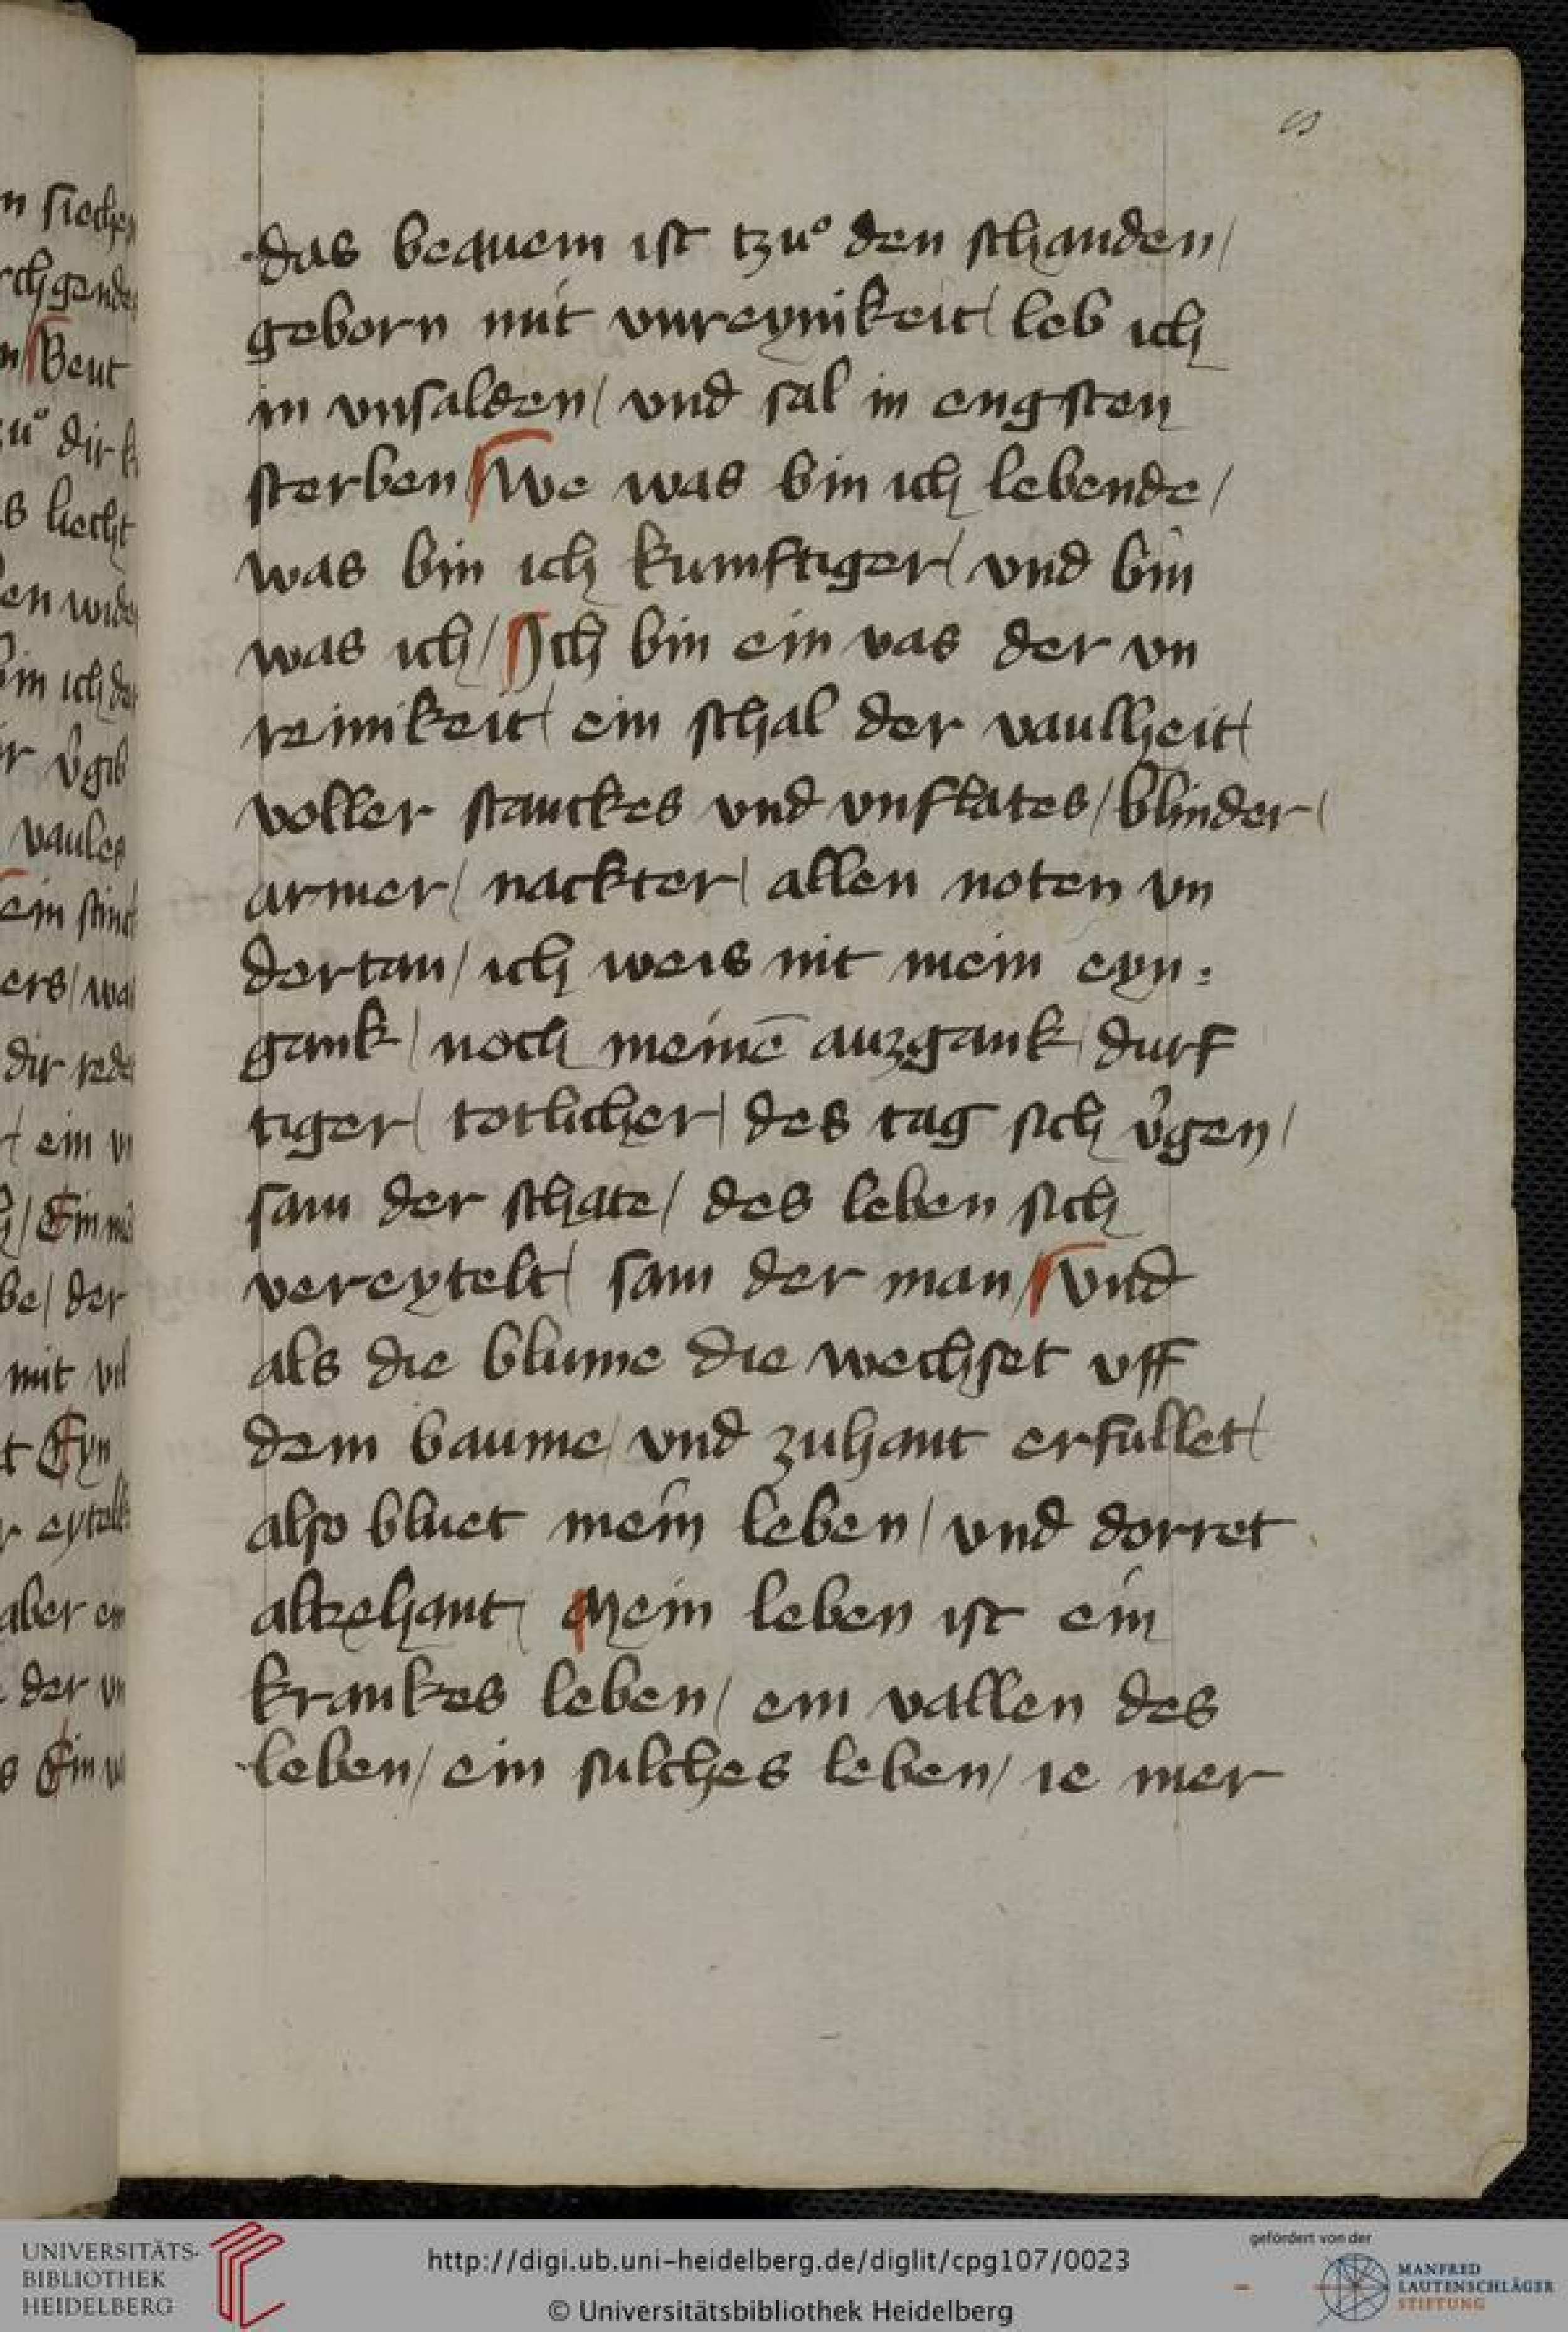 das bequem ist tzuͦ den schanden/
geborn mit vnreynikeit/ leb ich
in vnsalden/ vnd sal in engsten
sterben We was bin ich lebende/
was bin ich kumftiger/ vnd bin
was ich/ Ich bin ein vas der vn
reinikeit/ ein schal der vaulheit/
voller stanckes vnd vnflates/ blinder/
armer/ nackter/ allen noten vn
dertan/ ich weis nit mein eyn:
gank/ noch meinē auzgank/ durf
tiger/ totlicher/ des tag sich v̉gen/
sam der schate/ des leben sich
vereytelt/ sam der man/ vnd
als die blume die wechset vff
dem baume/ vnd zuhant erfullet/
also bluet mein leben/ vnd dorret
altzehant/ Mein leben ist ein
krankes leben/ ein vallen des
leben/ ein sulches leben/ ie mer
UNIVERSITÄTS-
BIBLIOTHEK
HEIDELBERG
http://digi.ub.uni-heidelberg.de/diglit/cpg107/0023
© Universitätsbibliothek Heidelberg
gefördert von der
MANFRED
LAUTENSCHLÄGER
STIFTUNG